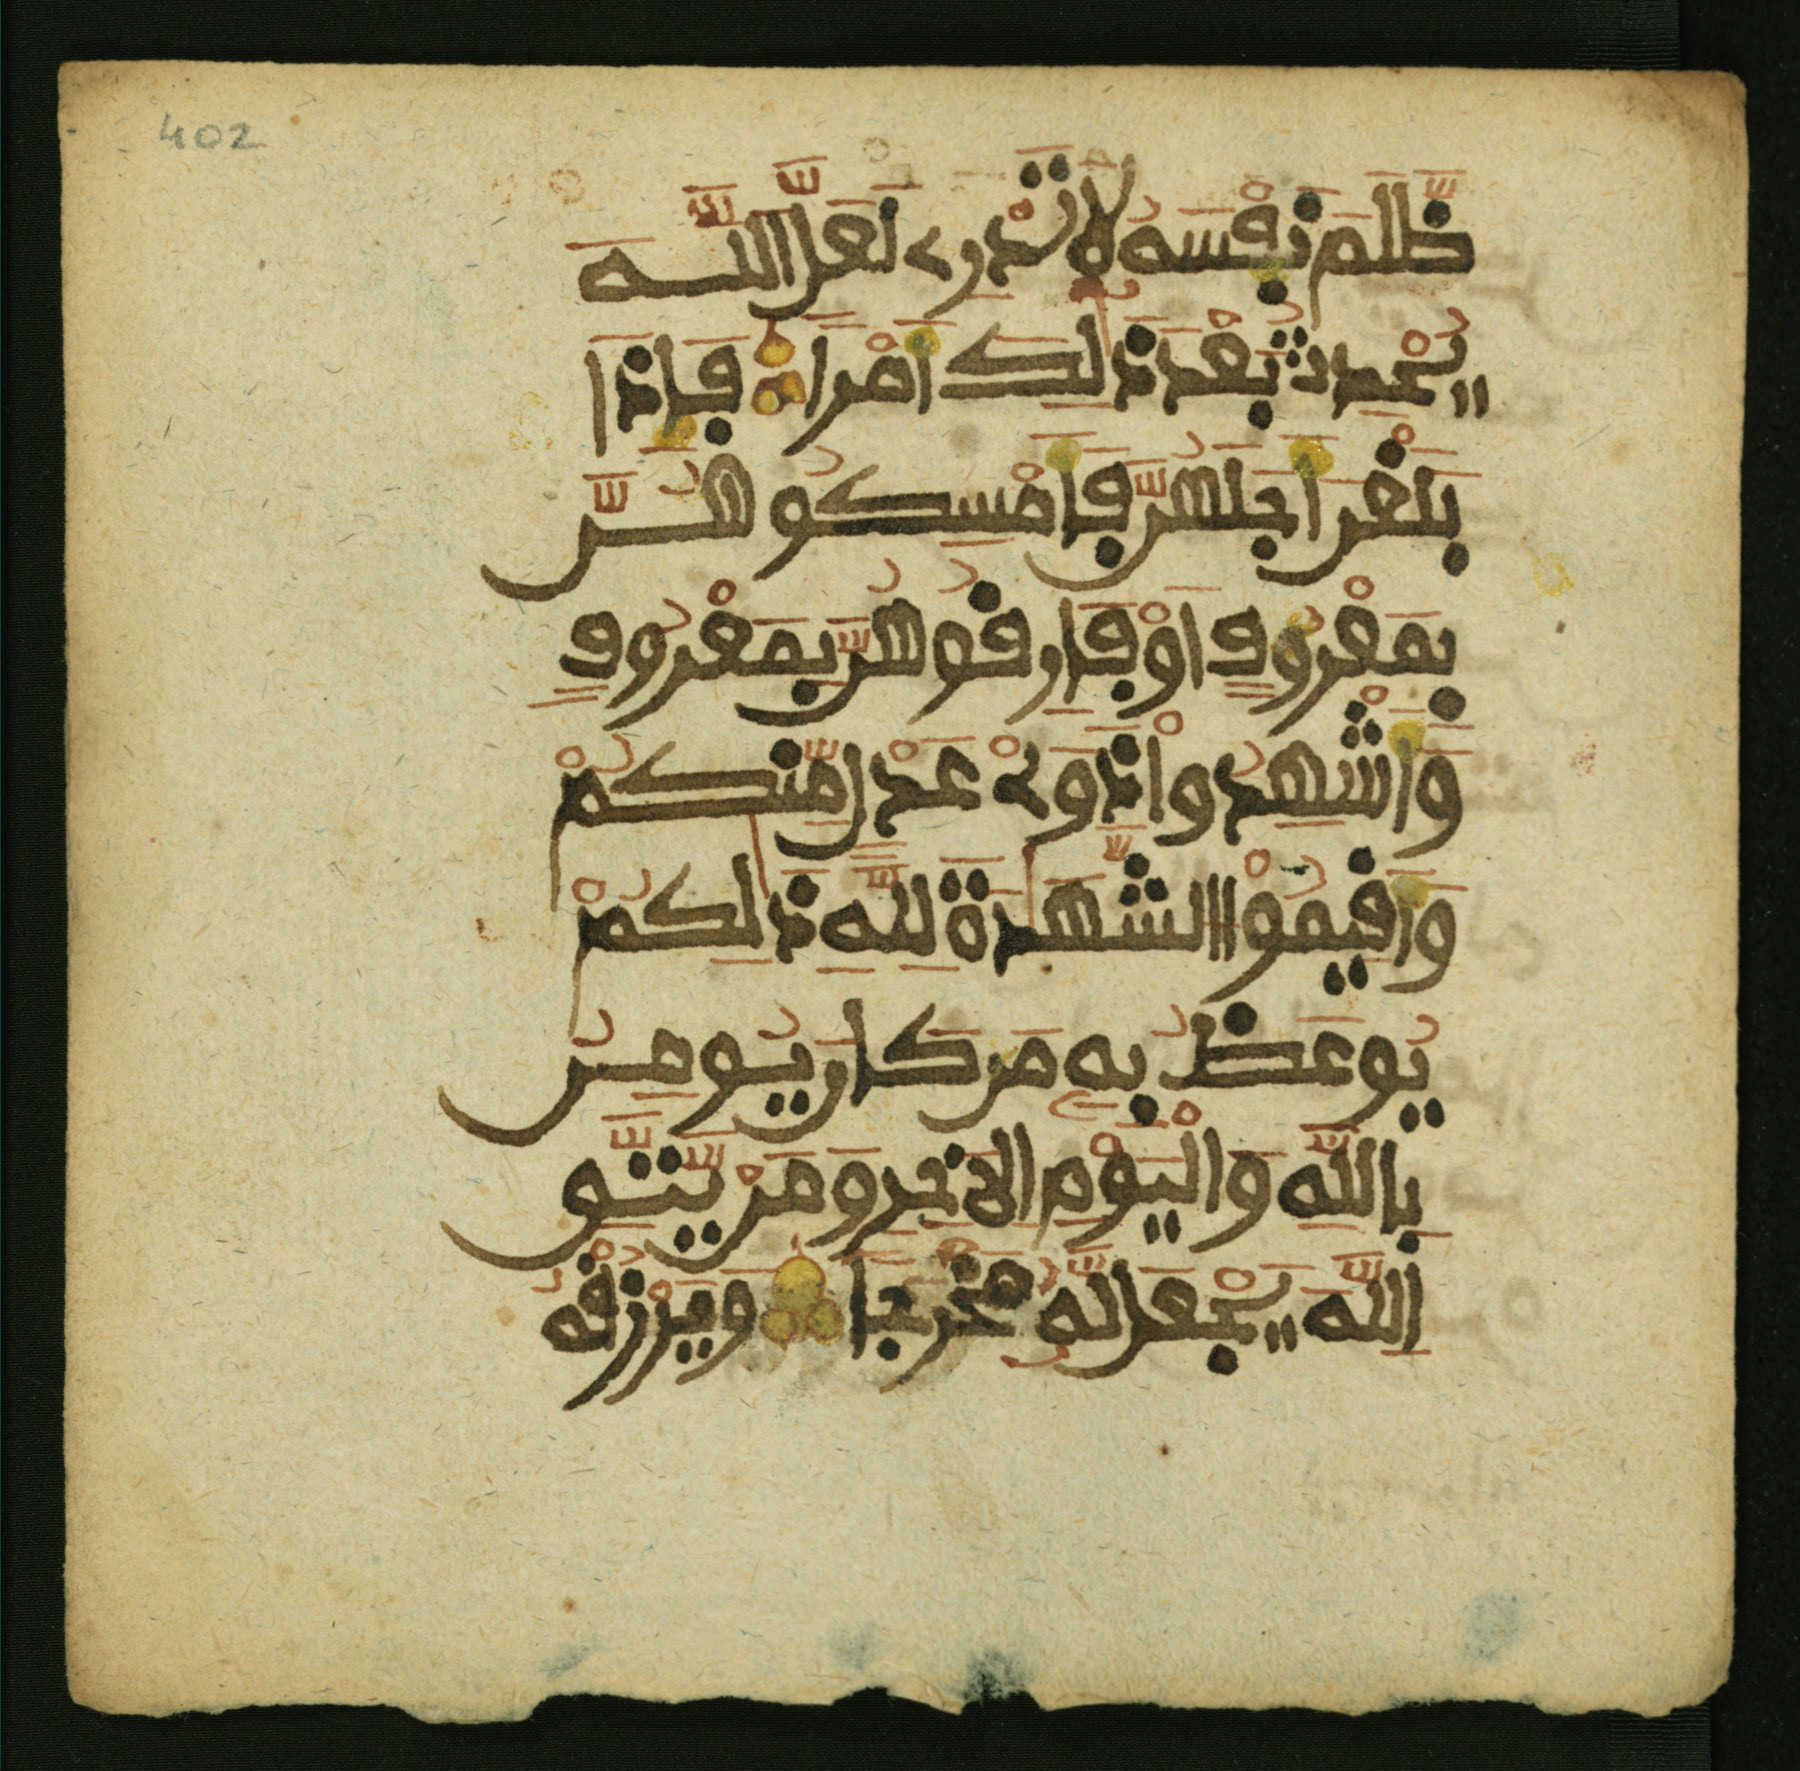 402
ظَّلَمَ نَفْسَهُ لَا تَدْرِے لَعَلَّ اَللَّهَ
يُحْدِثُ بَعْدَ ذَلِكَ أَمْراً فَإِذَا
بَلَغْنَ أَجَلَهُنَّ فَأَمْسِكُوهُنَّ
بِمَعْرُوفٍ أَوْ فَارِقُوهُنَّ بِمَعْرُوفٍ
وَأَشْهِدُوا ذَوَےْ عَدْلٍ مِّنكُمْ
وَأَقِيمُوْا اَلشَّهَدَةَ لِلَّهِ ذَلِكُمْ
يُوعَظُ بِهِ مَن كَانَ يُومِنُ
بِاللَّهِ وَالْيَوْمِ اَلاَخِرِ وَمَنْ يَّتَّقِ
اِللَّهَ يَجْعَل لَّهُ مَخْرَجاً وَيَرْزُقْهُ